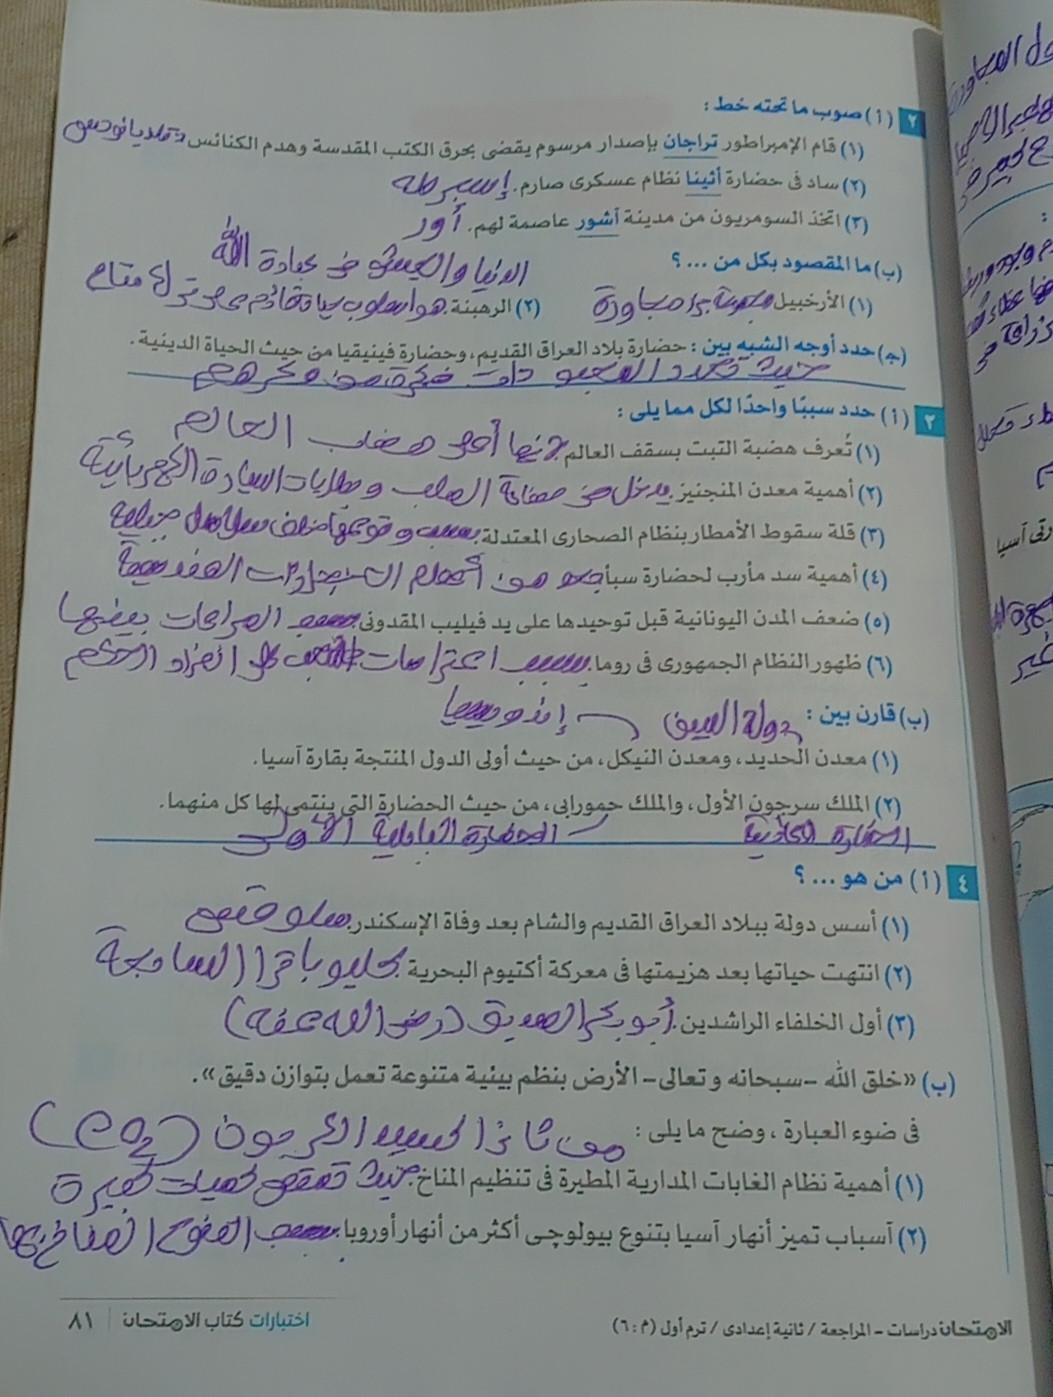 ٢ (أ) صوب ما تحته خط :
(١) قام الإمبراطور تراجان بإصدار مرسوم يقضى بحرق الكتب المقدسة وهدم الكنائس.
(٢) ساد فى حضارة أثينا نظام عسكرى صارم. إسبرطه
(٣) اتخذ السومريون من مدينة آشور عاصمة لهم. أور
(ب) ما المقصود بكل من ... ؟ الدنيا والعيش فى عبادة الله
(١) الأرخبيل (٢) الرهبنة. هو اسلوب حياة
(جـ) حدد أوجه الشبه بين : حضارة بلاد العراق القديم، وحضارة فينيقيا من حيث الحياة الدينية.
حيث
٣ (أ) حدد سببًا واحدًا لكل مما يلى :
(١) تُعرف هضبة التبت بسقف العالم هضاب العالم
(٢) أهمية معدن المنجنيز. يدخل فى صناعة الصلب وبطاريات السيارة الكهربائية
(٣) قلة سقوط الأمطار بنظام الصحارى المعتدلة بسبب وقوعها خلف سلاسل جبلية
(٤) أهمية سد مأرب لحضارة سبأ
(٥) ضعف المدن اليونانية قبل توحيدها على يد فيليب المقدونى بسبب الصراعات بينها
(٦) ظهور النظام الجمهورى فى روما. بسبب الحكم
(ب) قارن بين : دولة الصين - إندونيسيا
(١) معدن الحديد، ومعدن النيكل، من حيث أولى الدول المنتجة بقارة آسيا.
(٢) الملك سرجون الأول، والملك حمورابى، من حيث الحضارة التى ينتمى لها كل منهما.
الحضارة - الحضارة البابلية الأولى
٤ (أ) من هو ... ؟
(١) أسس دولة ببلاد العراق القديم والشام بعد وفاة الإسكندر.
(٢) انتهت حياتها بعد هزيمتها فى معركة أكتيوم البحرية. كليوباترا السابعة
(٣) أول الخلفاء الراشدين. أبو بكر الصديق (رضى الله عنه)
(ب) «خلق الله -سبحانه وتعالى- الأرض بنظم بيئية متنوعة تعمل بتوازن دقيق».
فى ضوء العبارة ، وضح ما يلى : من ثانى اكسيد الكربون (CO2)
(١) أهمية نظام الغابات المدارية المطيرة فى تنظيم المناخ. حيث تمتص كميات كبيرة
(٢) أسباب تميز أنهار آسيا بتنوع بيولوجى أكثر من أنهار أوروبا. بسبب التنوع المناخى بها
الامتحان دراسات - المراجعة / ثانية إعدادى / ترم أول (م : ٦)
اختبارات كتاب الامتحان | ٨١